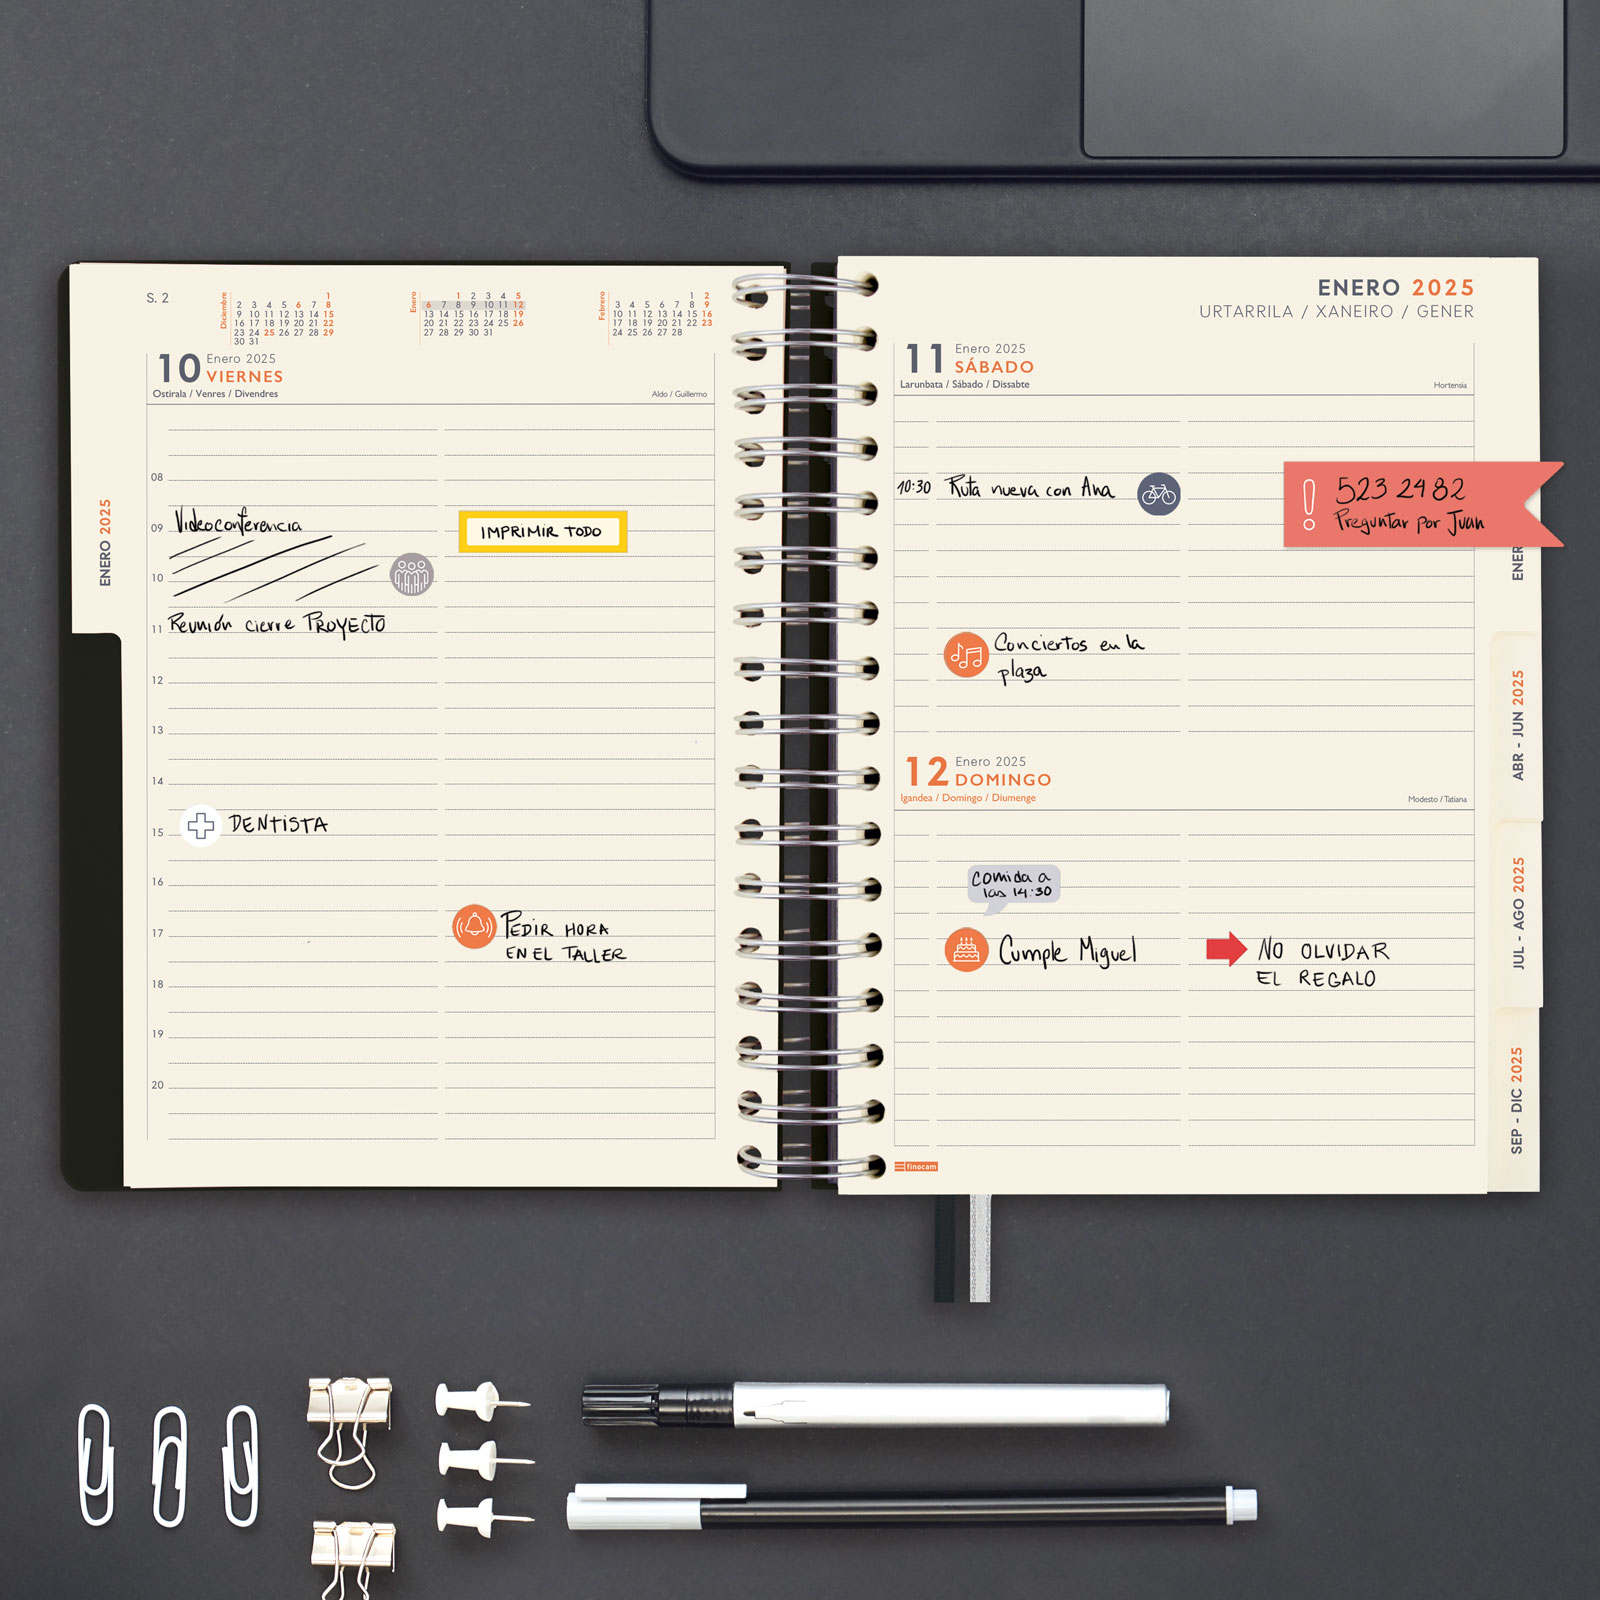 S. 2
Diciembre
1
2 3 4 5 6 7 8
9 10 11 12 13 14 15
16 17 18 19 20 21 22
23 24 25 26 27 28 29
30 31
Enero
1 2 3 4 5
6 7 8 9 10 11 12
13 14 15 16 17 18 19
20 21 22 23 24 25 26
27 28 29 30 31
Febrero
1 2
3 4 5 6 7 8 9
10 11 12 13 14 15 16
17 18 19 20 21 22 23
24 25 26 27 28
10 Enero 2025
VIERNES
Ostirala / Venres / Divendres
Aldo / Guillermo
ENERO 2025
08
09 Videoconferencia
IMPRIMIR TODO
10
11 Reunión cierre PROYECTO
12
13
14
15 DENTISTA
16
17
PEDIR HORA
EN EL TALLER
18
19
20
ENERO 2025
URTARRILA / XANEIRO / GENER
11 Enero 2025
SÁBADO
Larunbata / Sábado / Dissabte
Hortensia
10:30 Ruta nueva con Ana
523 2482
Preguntar por Juan
Conciertos en la
plaza
12 Enero 2025
DOMINGO
Igandea / Domingo / Diumenge
Modesto / Tatiana
Comida a
las 14:30
Cumple Miguel
NO OLVIDAR
EL REGALO
finocam
ENER
ABR - JUN 2025
JUL - AGO 2025
SEP - DIC 2025